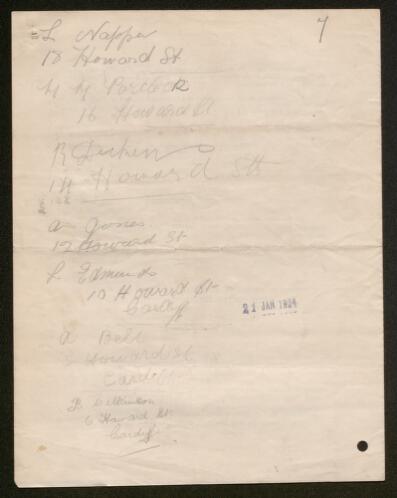 7
L Napper
18 Howard St
16 Howard St
R
14 Howard Stt
A Jones
12 Howard St
L Edmunds
10 Howard St
Cardiff
21 JAN 1924
A Bell
8 Howard St
Cardiff
6 Howard St
Cardiff